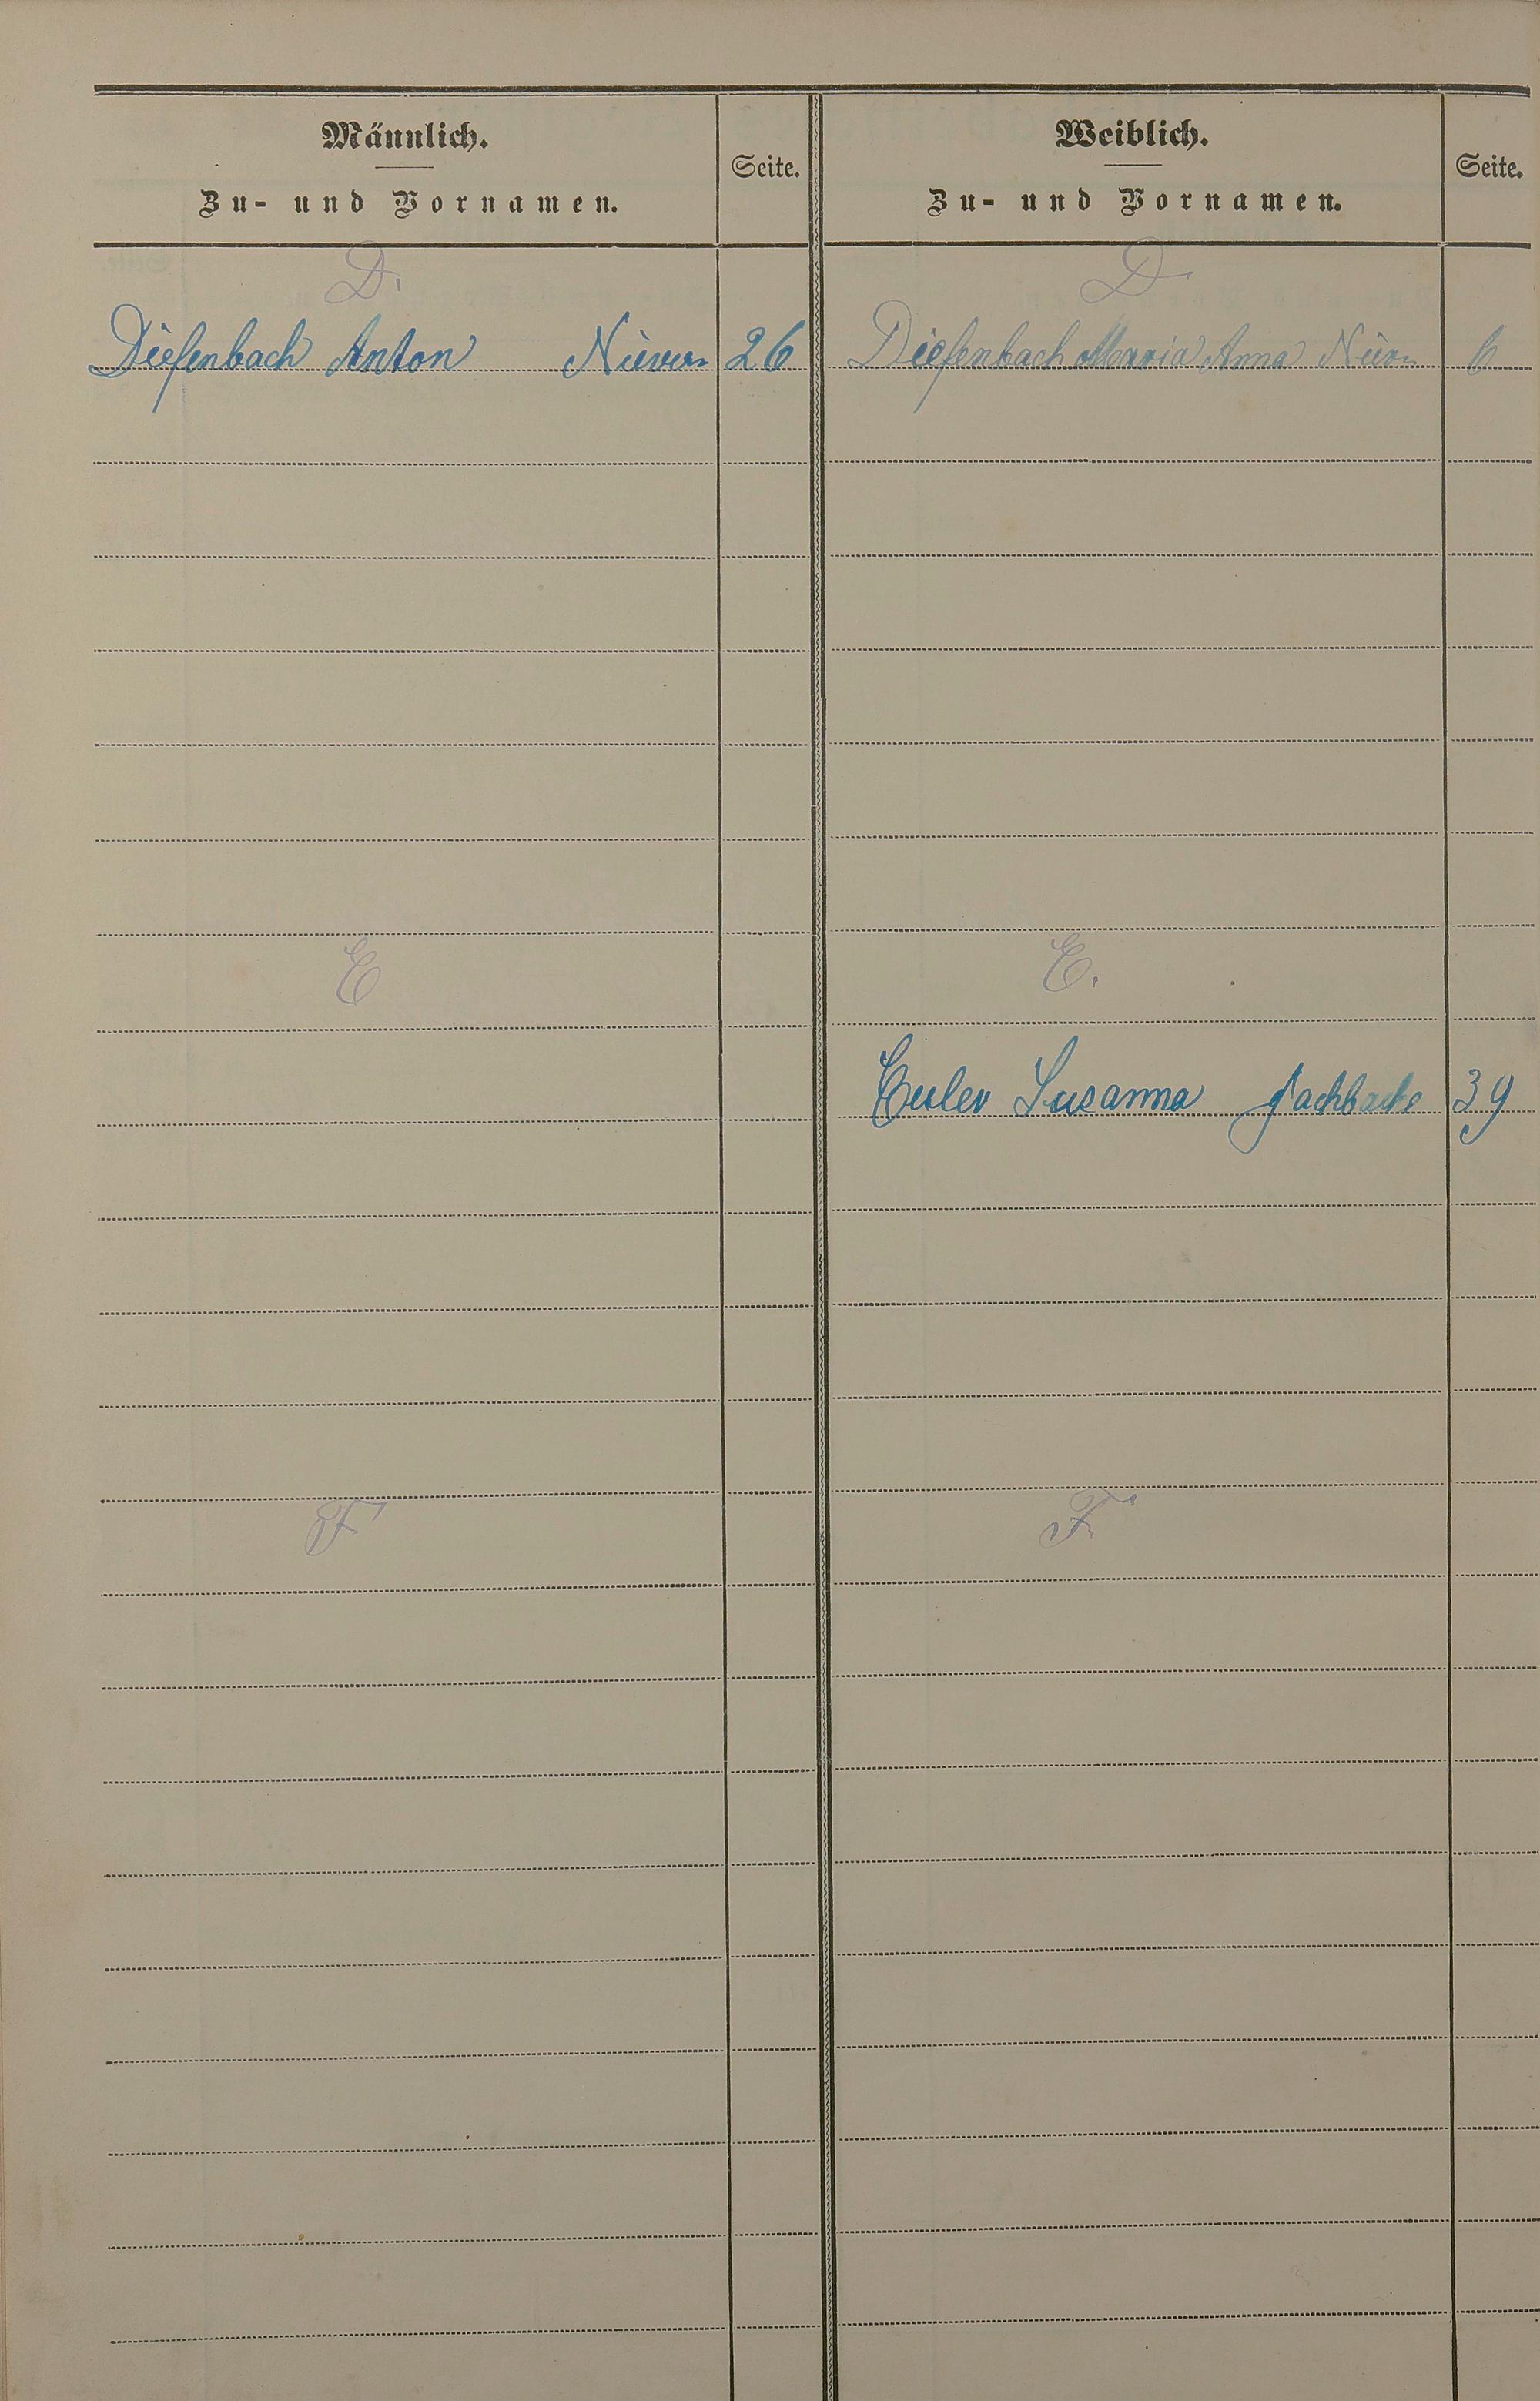 Männlich.
Zu- und Vornamen.
Seite.
Weiblich.
Zu- und Vornamen.
Seite.
D.
D.
Diefenbach Anton Nievern 26
Diefenbach Maria Anna Nievn 6
E
E.
Euler Susanna Fachbach 39
F
F